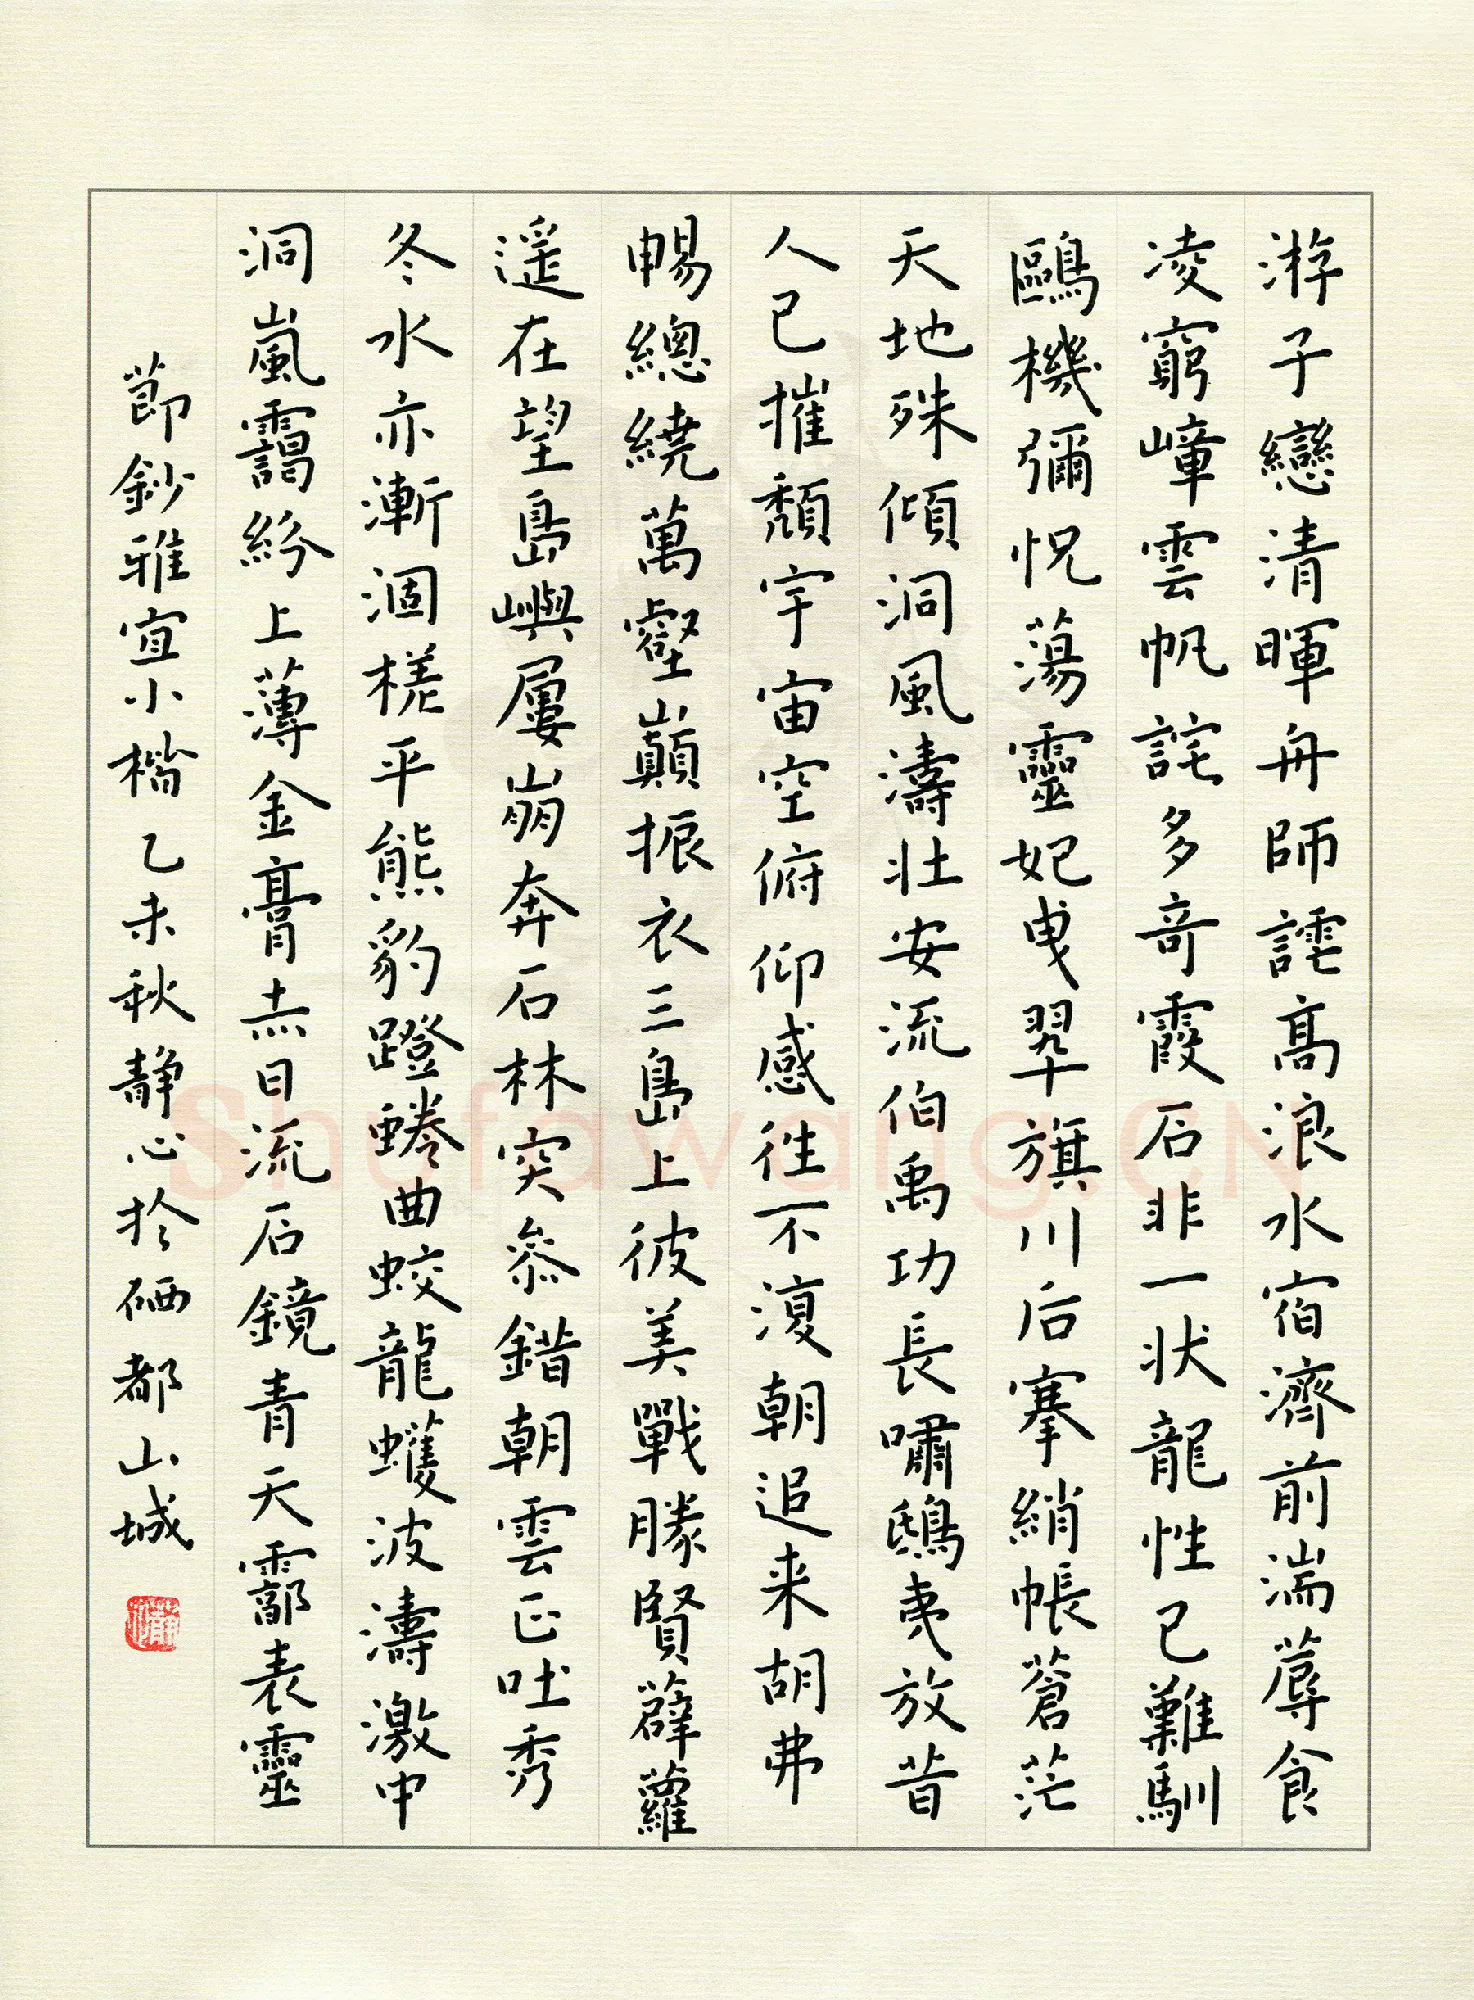 游子戀清暉舟師謔高浪水宿濟前湍蓐食
凌窮嶂雲帆詫多奇霞石非一狀龍性已難馴
鷗機彌怳蕩靈妃曳翠旗川后搴綃帳蒼茫
天地殊傾洞風濤壯安流伯禹功長嘯鴟夷放昔
人已摧頹宇宙空俯仰感往不復朝追来胡弗
暢總繞萬壑巔振衣三島上彼美戰勝賢薜蘿
遥在望島嶼屢崩奔石林突叅錯朝雲正吐秀
冬水亦漸涸槎平熊豹蹬蜷曲蛟龍蠖波濤激中
洞嵐靄紛上薄金膏赤日流石鏡青天霩表靈
節鈔雅宜小楷乙未秋静心於硒都山城
Shufawang.CN